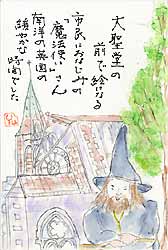 大聖堂の
前で絵になる
市民におなじみの
「魔法使い」さん
南洋の英国
緩やかな
時間でした